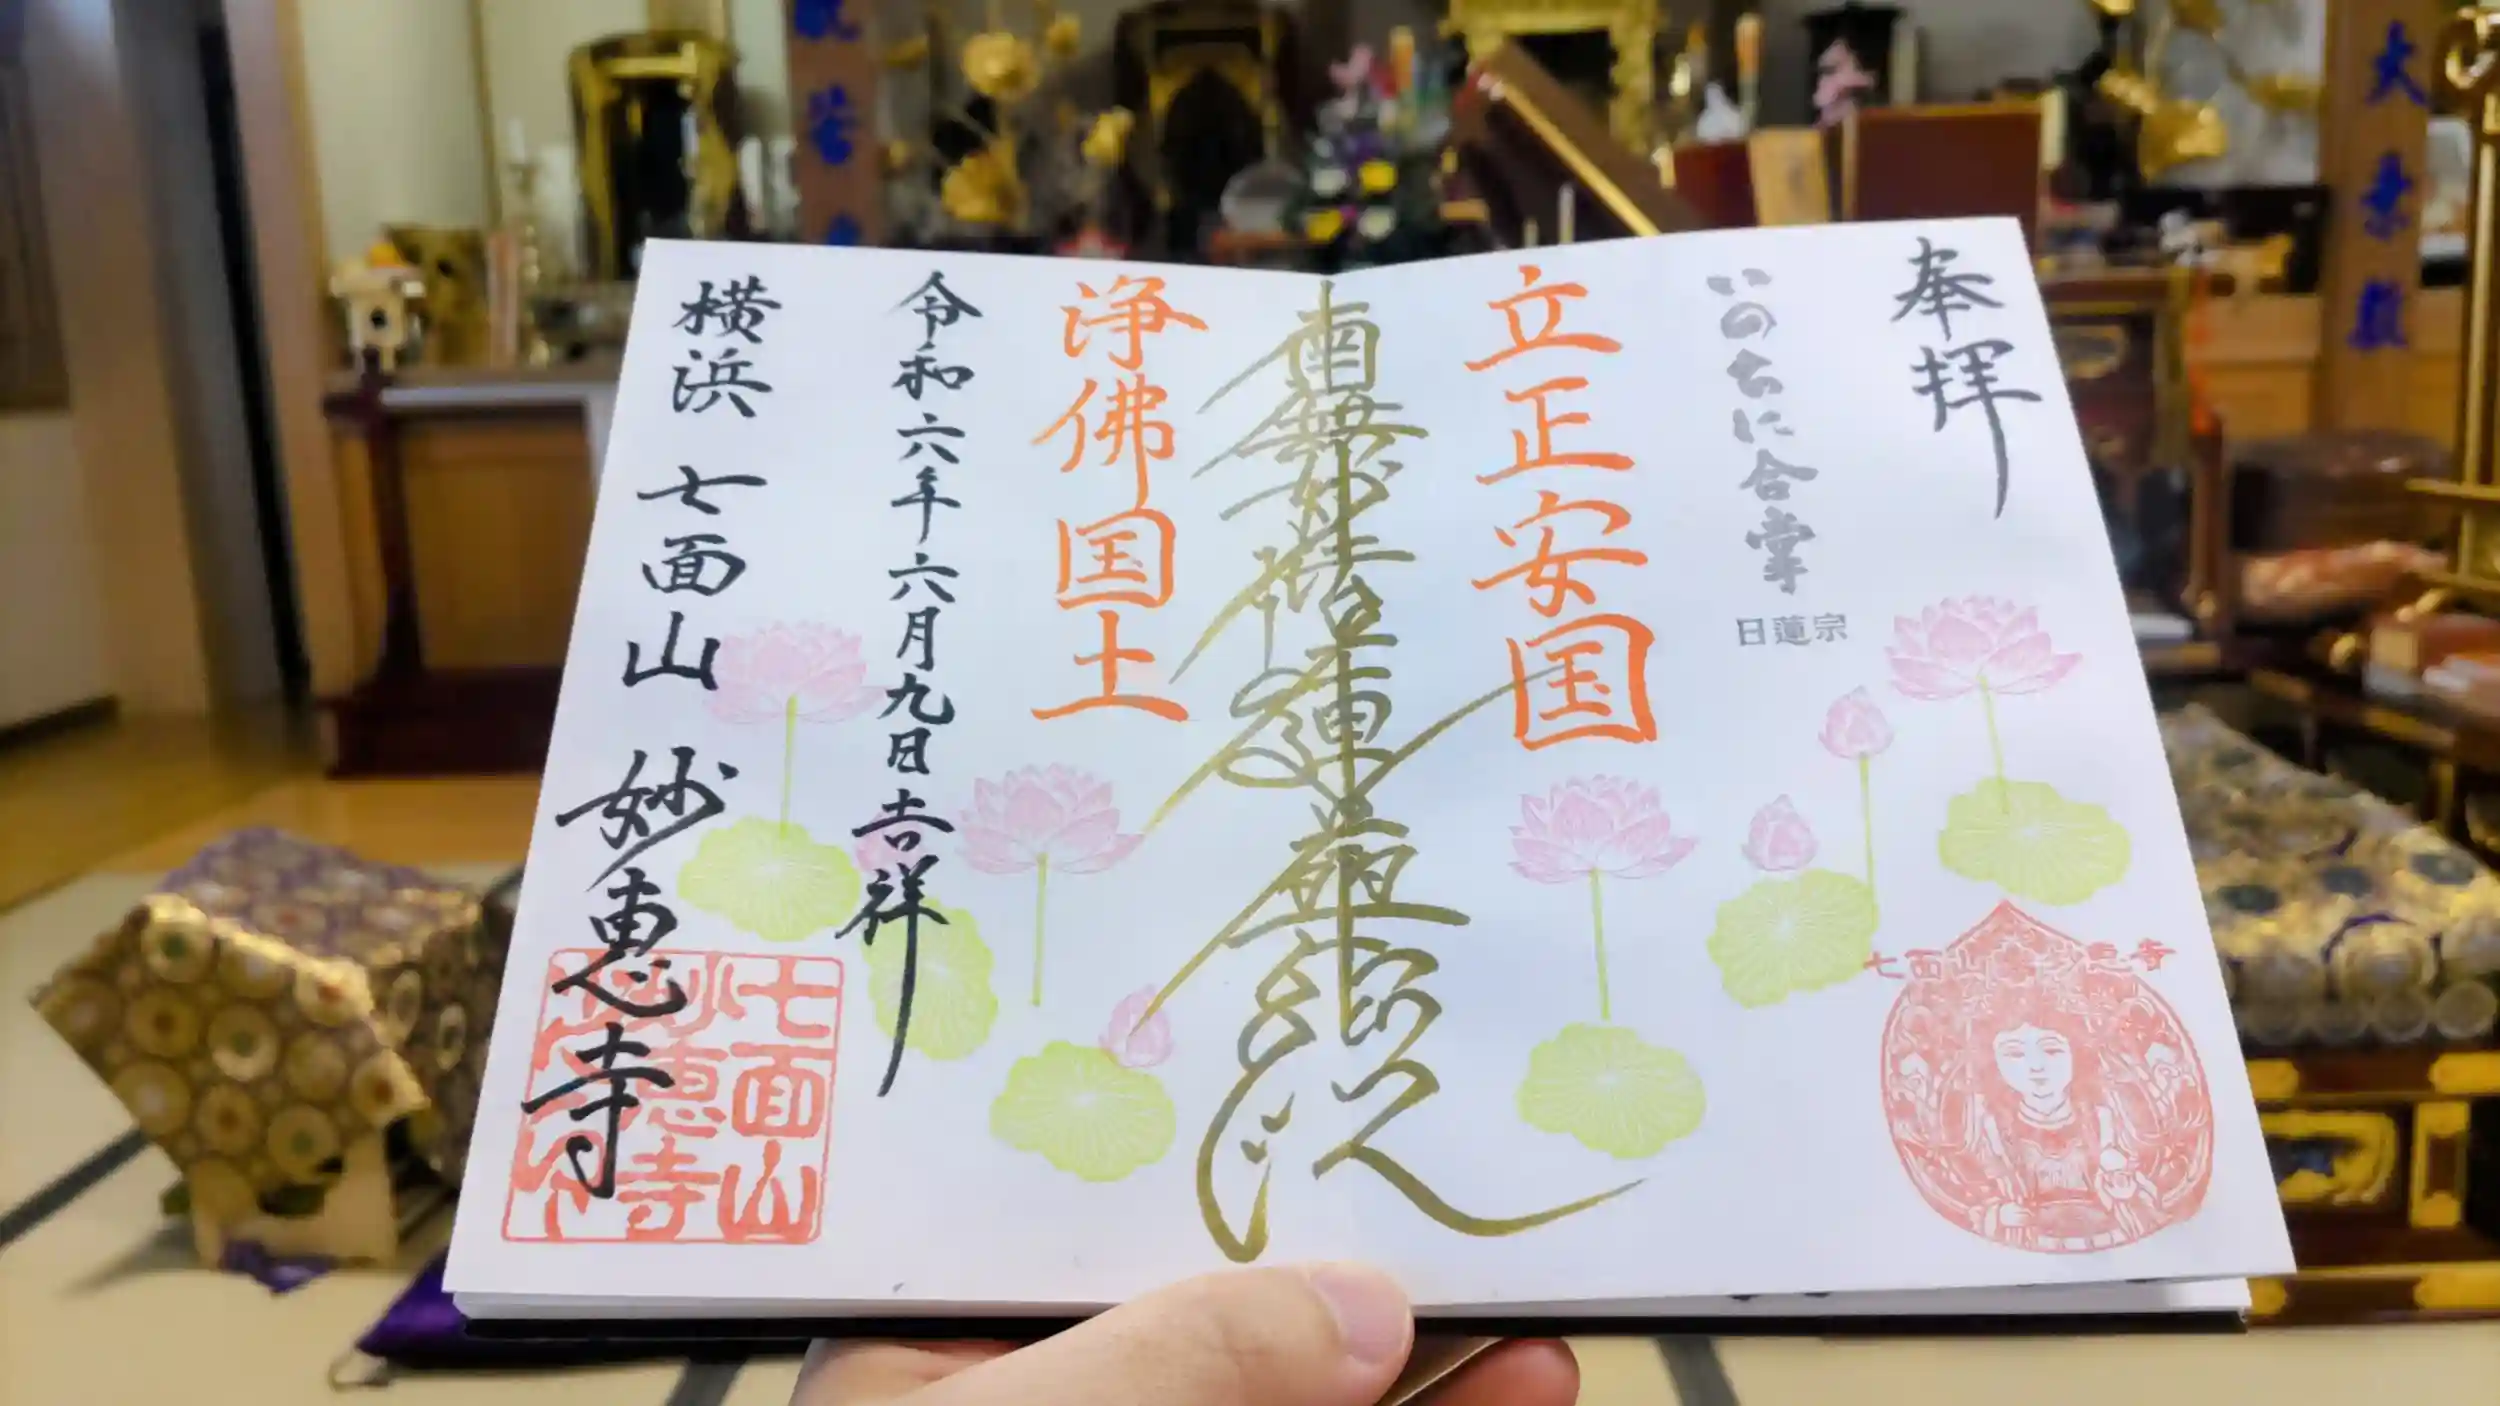 奉拝
いのちに合掌
日蓮宗
立正安国
南無妙法蓮華経
浄佛国土
令和六年六月九日吉祥
横浜 七面山 妙恵寺
七面山
妙恵寺
大